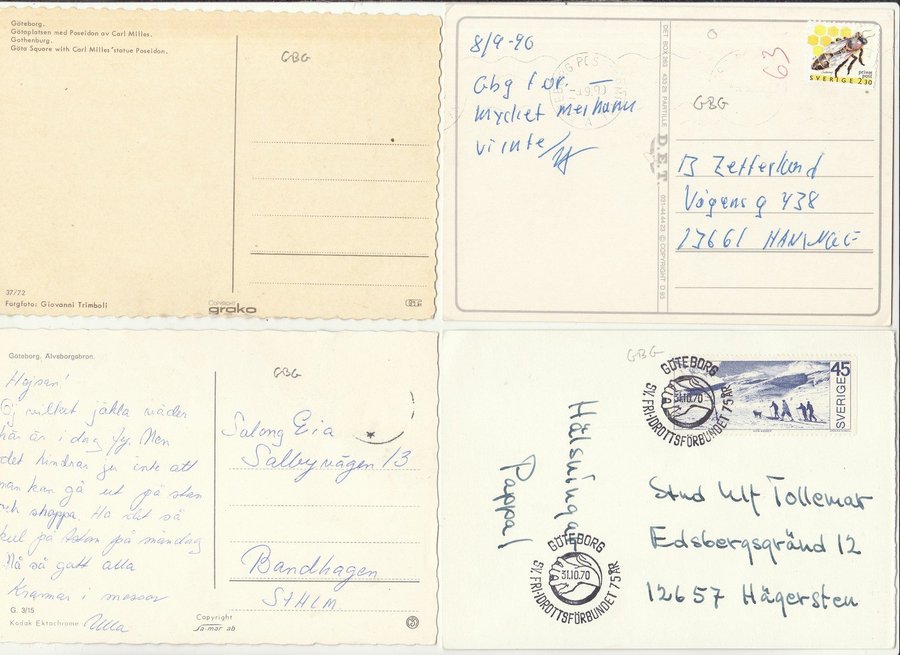 Göteborg.
Götaplatsen med Poseidon av Carl Milles.
Gothenburg.
Göta Square with Carl Milles' statue Poseidon.
GBG
37/72
Färgfoto: Giovanni Trimboli
Copyright
grako
8/9-90
Gbg för
mycket mer hann
vi inte
GBG
63
private
post
SVERIGE 2.30
DET BOX 280 433 25 PARTILLE
D.E.T.
031-44 44 23 © COPYRIGHT D 93
B Zetterlund
Vågens g 438
13661 HANINGE
Göteborg, Älvsborgsbron.
GBG
Hejsan!
Oj vilket jäkla väder
här är i dag fy. Men
det hindrar ju inte att
man kan gå ut på stan
och shoppa. Ha det så
kul på på måndag
Må så gott alla
Kramar i massor
Ulla
G. 3/15
Kodak Ektachrome
Copyright
Sa-mar ab
Salong Eia
Salbyvägen 13
Bandhagen
STHLM.
GBG
GÖTEBORG
31.10.70
SV. FRI-IDROTTSFÖRBUNDET 75 ÅR
45
SVERIGE
Hälsningar
Pappa!
GÖTEBORG
31.10.70
SV. FRI-IDROTTSFÖRBUNDET 75 ÅR
Stud Ulf Tollemar
Edsbergsgränd 12
12657 Hägersten